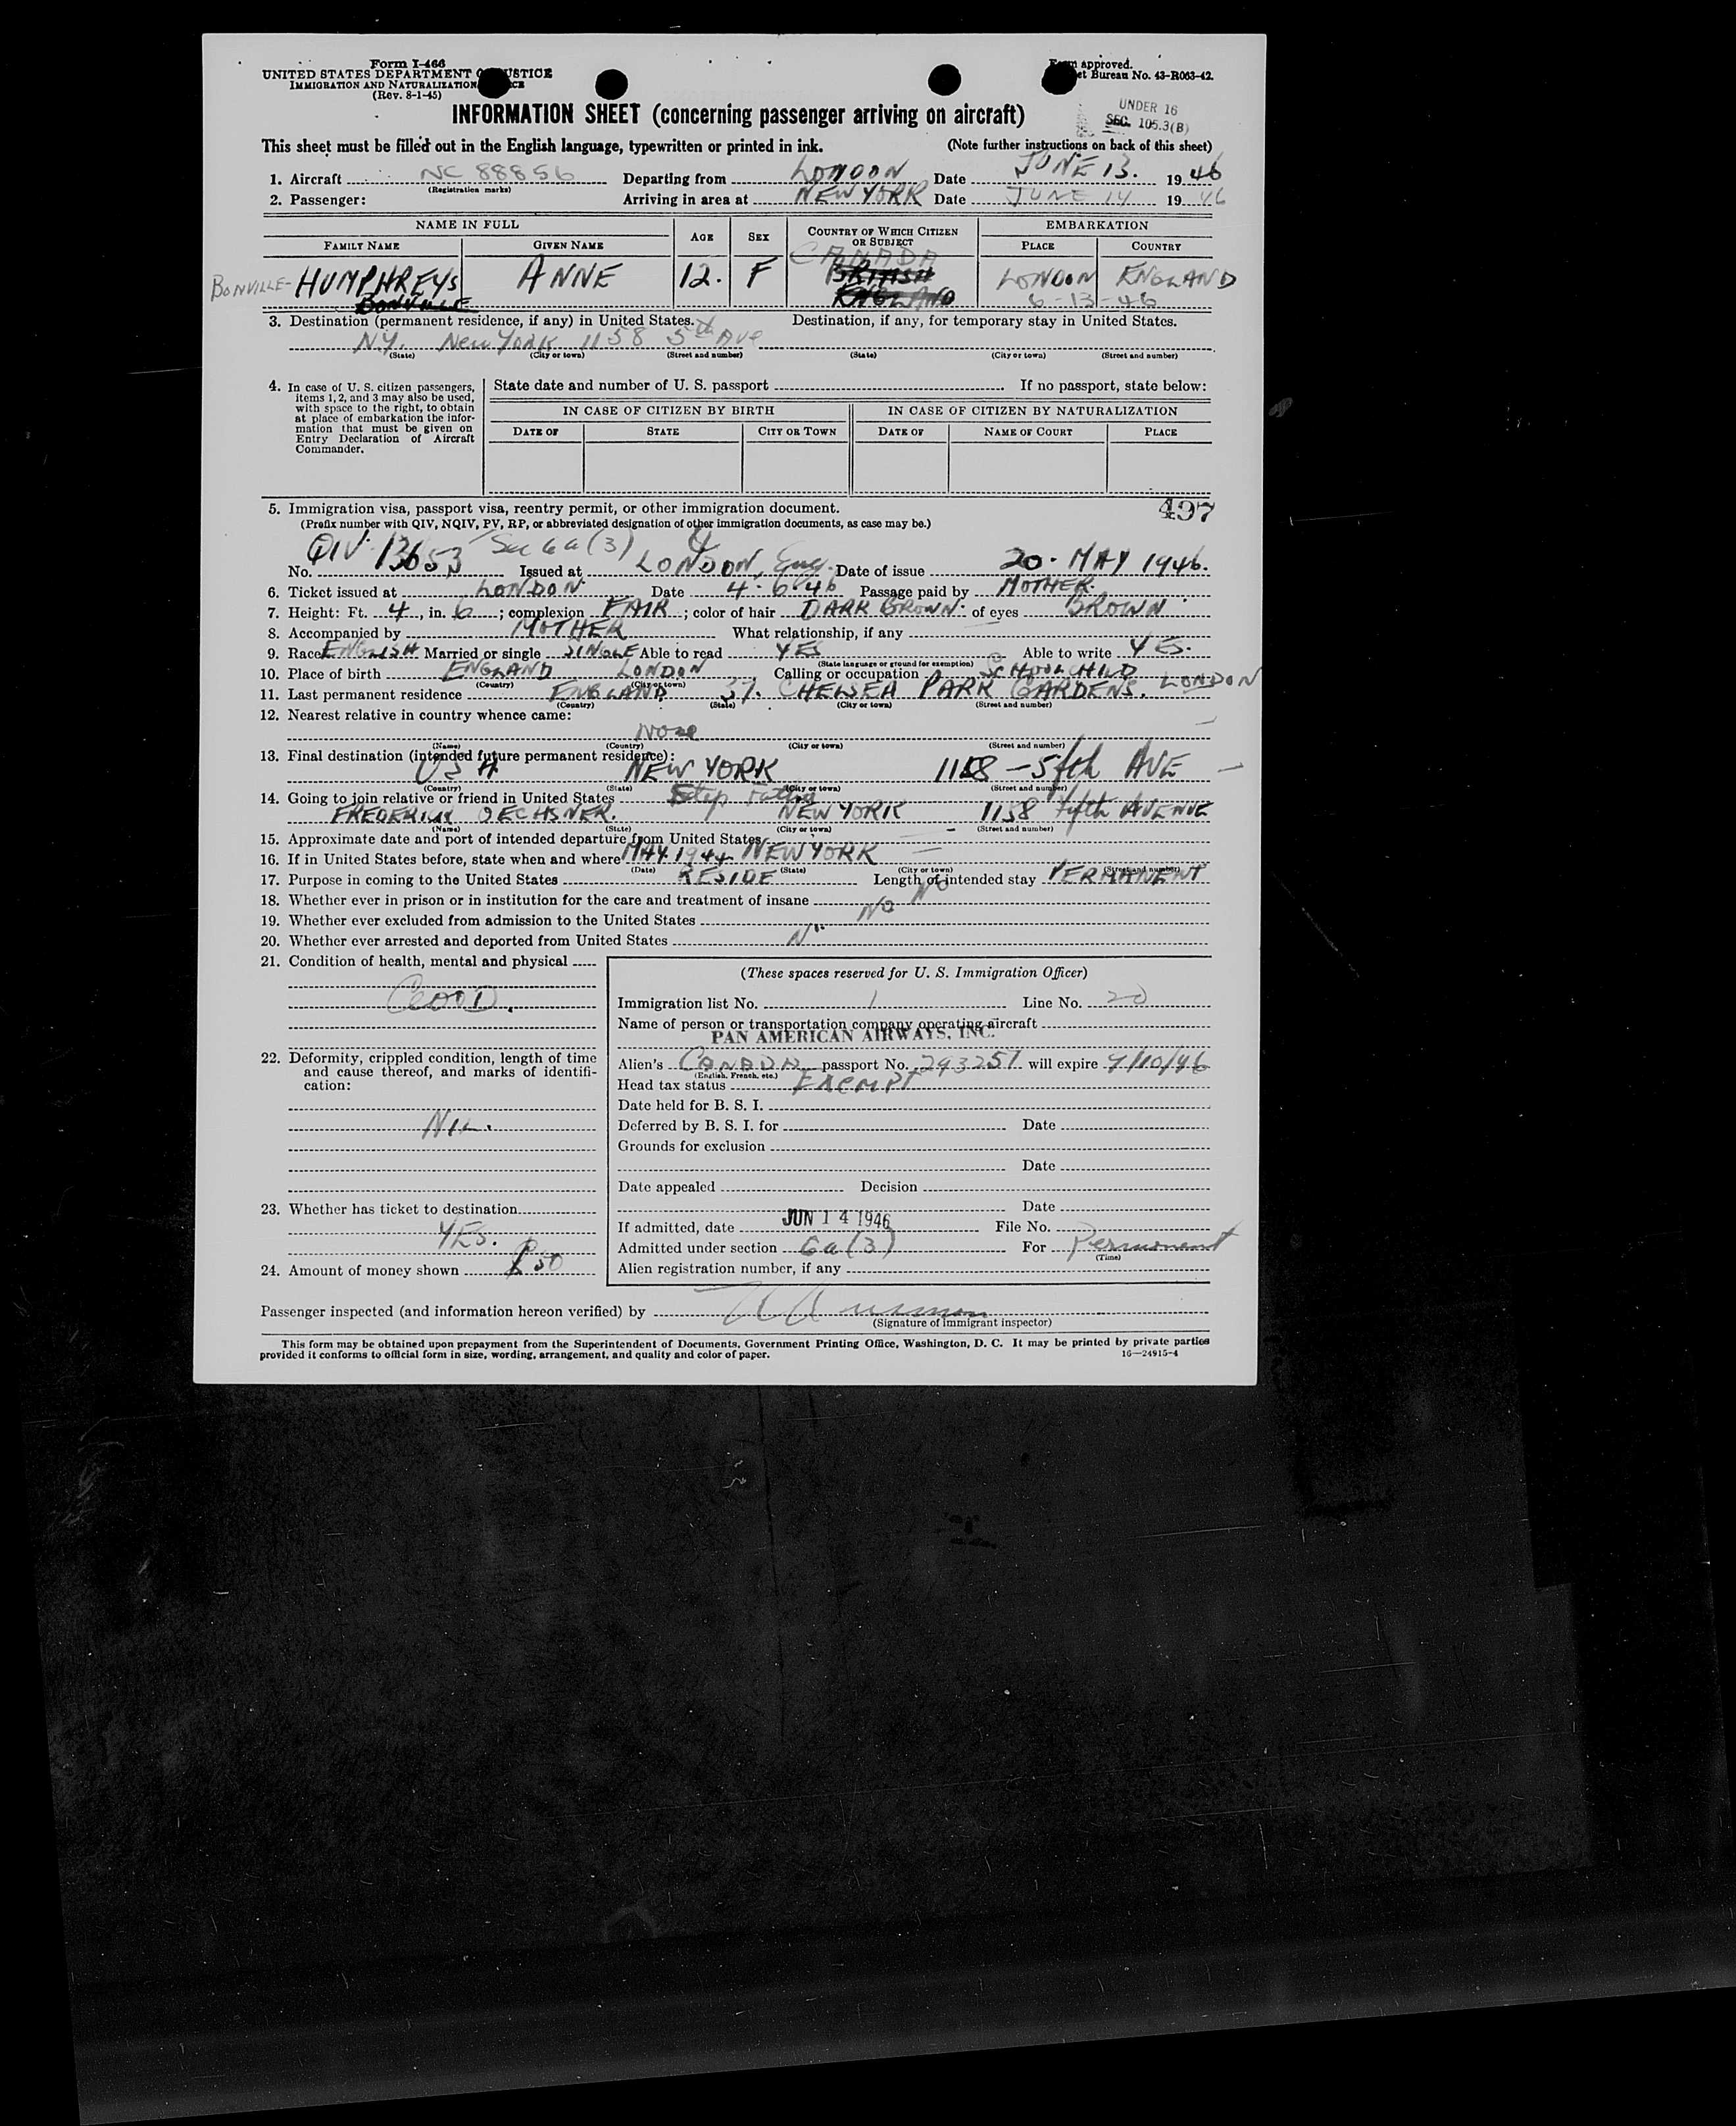 Form I-466
UNITED STATES DEPARTMENT OF JUSTICE
IMMIGRATION AND NATURALIZATION SERVICE
(Rev. 8-1-45)
Form approved.
Budget Bureau No. 43-R063-42.
UNDER 16
SEC. 105.3(B)
INFORMATION SHEET (concerning passenger arriving on aircraft)
This sheet must be filled out in the English language, typewritten or printed in ink. (Note further instructions on back of this sheet)
1. Aircraft NC 88856 Departing from LONDON Date JUNE 13. 1946
(Registration marks)
2. Passenger: Arriving in area at NEW YORK Date JUNE 14 1946
NAME IN FULL AGE SEX COUNTRY OF WHICH CITIZEN OR SUBJECT EMBARKATION
FAMILY NAME GIVEN NAME PLACE COUNTRY
CANADA
BONVILLE- HUMPHREYS ANNE 12. F BRITISH LONDON ENGLAND
BONVILLE ENGLAND 6-13-46
3. Destination (permanent residence, if any) in United States. Destination, if any, for temporary stay in United States.
N.Y. New York 1158 5th Ave
(State) (City or town) (Street and number) (State) (City or town) (Street and number)
4. In case of U. S. citizen passengers, items 1, 2, and 3 may also be used, with space to the right, to obtain at place of embarkation the information that must be given on Entry Declaration of Aircraft Commander.
State date and number of U. S. passport If no passport, state below:
IN CASE OF CITIZEN BY BIRTH IN CASE OF CITIZEN BY NATURALIZATION
DATE OF STATE CITY OR TOWN DATE OF NAME OF COURT PLACE
5. Immigration visa, passport visa, reentry permit, or other immigration document. 497
(Prefix number with QIV, NQIV, PV, RP, or abbreviated designation of other immigration documents, as case may be.)
Sec 6a(3)
No. QIV 13653 Issued at LONDON, Eng. Date of issue 20. MAY 1946.
6. Ticket issued at LONDON Date 4.6.46 Passage paid by MOTHER
7. Height: Ft. 4, in. 6; complexion FAIR; color of hair DARK BROWN. of eyes BROWN
8. Accompanied by MOTHER What relationship, if any
9. Race ENGLISH Married or single SINGLE Able to read YES Able to write YES.
(State language or ground for exemption)
10. Place of birth ENGLAND LONDON Calling or occupation SCHOOLCHILD
(Country) (City or town)
11. Last permanent residence ENGLAND 37. CHELSEA PARK GARDENS. LONDON
(Country) (State) (City or town) (Street and number)
12. Nearest relative in country whence came:
None
(Name) (Country) (City or town) (Street and number)
13. Final destination (intended future permanent residence):
USA NEW YORK 1158 - 5fth AVE
(Country) (State) (City or town) (Street and number)
14. Going to join relative or friend in United States Step Father
FREDERICK OECHSNER. NEW YORK 1158 fifth AVENUE
(Name) (State) (City or town) (Street and number)
15. Approximate date and port of intended departure from United States
16. If in United States before, state when and where MAY. 1944 NEW YORK
(Date) (State) (City or town) (Street and number)
17. Purpose in coming to the United States RESIDE Length of intended stay PERMANENT
18. Whether ever in prison or in institution for the care and treatment of insane No
19. Whether ever excluded from admission to the United States No
20. Whether ever arrested and deported from United States No
21. Condition of health, mental and physical
GOOD.
22. Deformity, crippled condition, length of time and cause thereof, and marks of identification:
NIL.
23. Whether has ticket to destination
YES.
24. Amount of money shown £50
(These spaces reserved for U. S. Immigration Officer)
Immigration list No. 1 Line No. 20
Name of person or transportation company operating aircraft
PAN AMERICAN AIRWAYS, INC.
Alien's CANADA passport No. 293251 will expire 9/10/46
(English, French, etc.)
Head tax status EXEMPT
Date held for B. S. I.
Deferred by B. S. I. for Date
Grounds for exclusion
Date
Date appealed Decision
Date
If admitted, date JUN 14 1946 File No.
Admitted under section 6a(3) For Permanent
(Time)
Alien registration number, if any
Passenger inspected (and information hereon verified) by
(Signature of immigrant inspector)
This form may be obtained upon prepayment from the Superintendent of Documents, Government Printing Office, Washington, D. C. It may be printed by private parties
provided it conforms to official form in size, wording, arrangement, and quality and color of paper. 16—24915-4